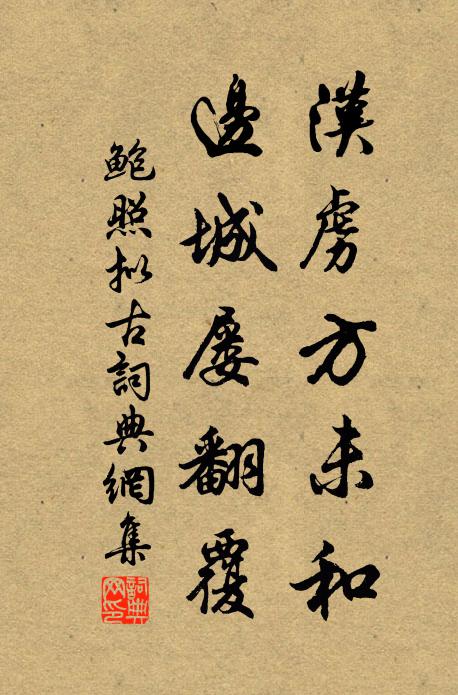 漢虜方未和
邊城屡翻覆
鮑照拟古詞典網集
詞典网印